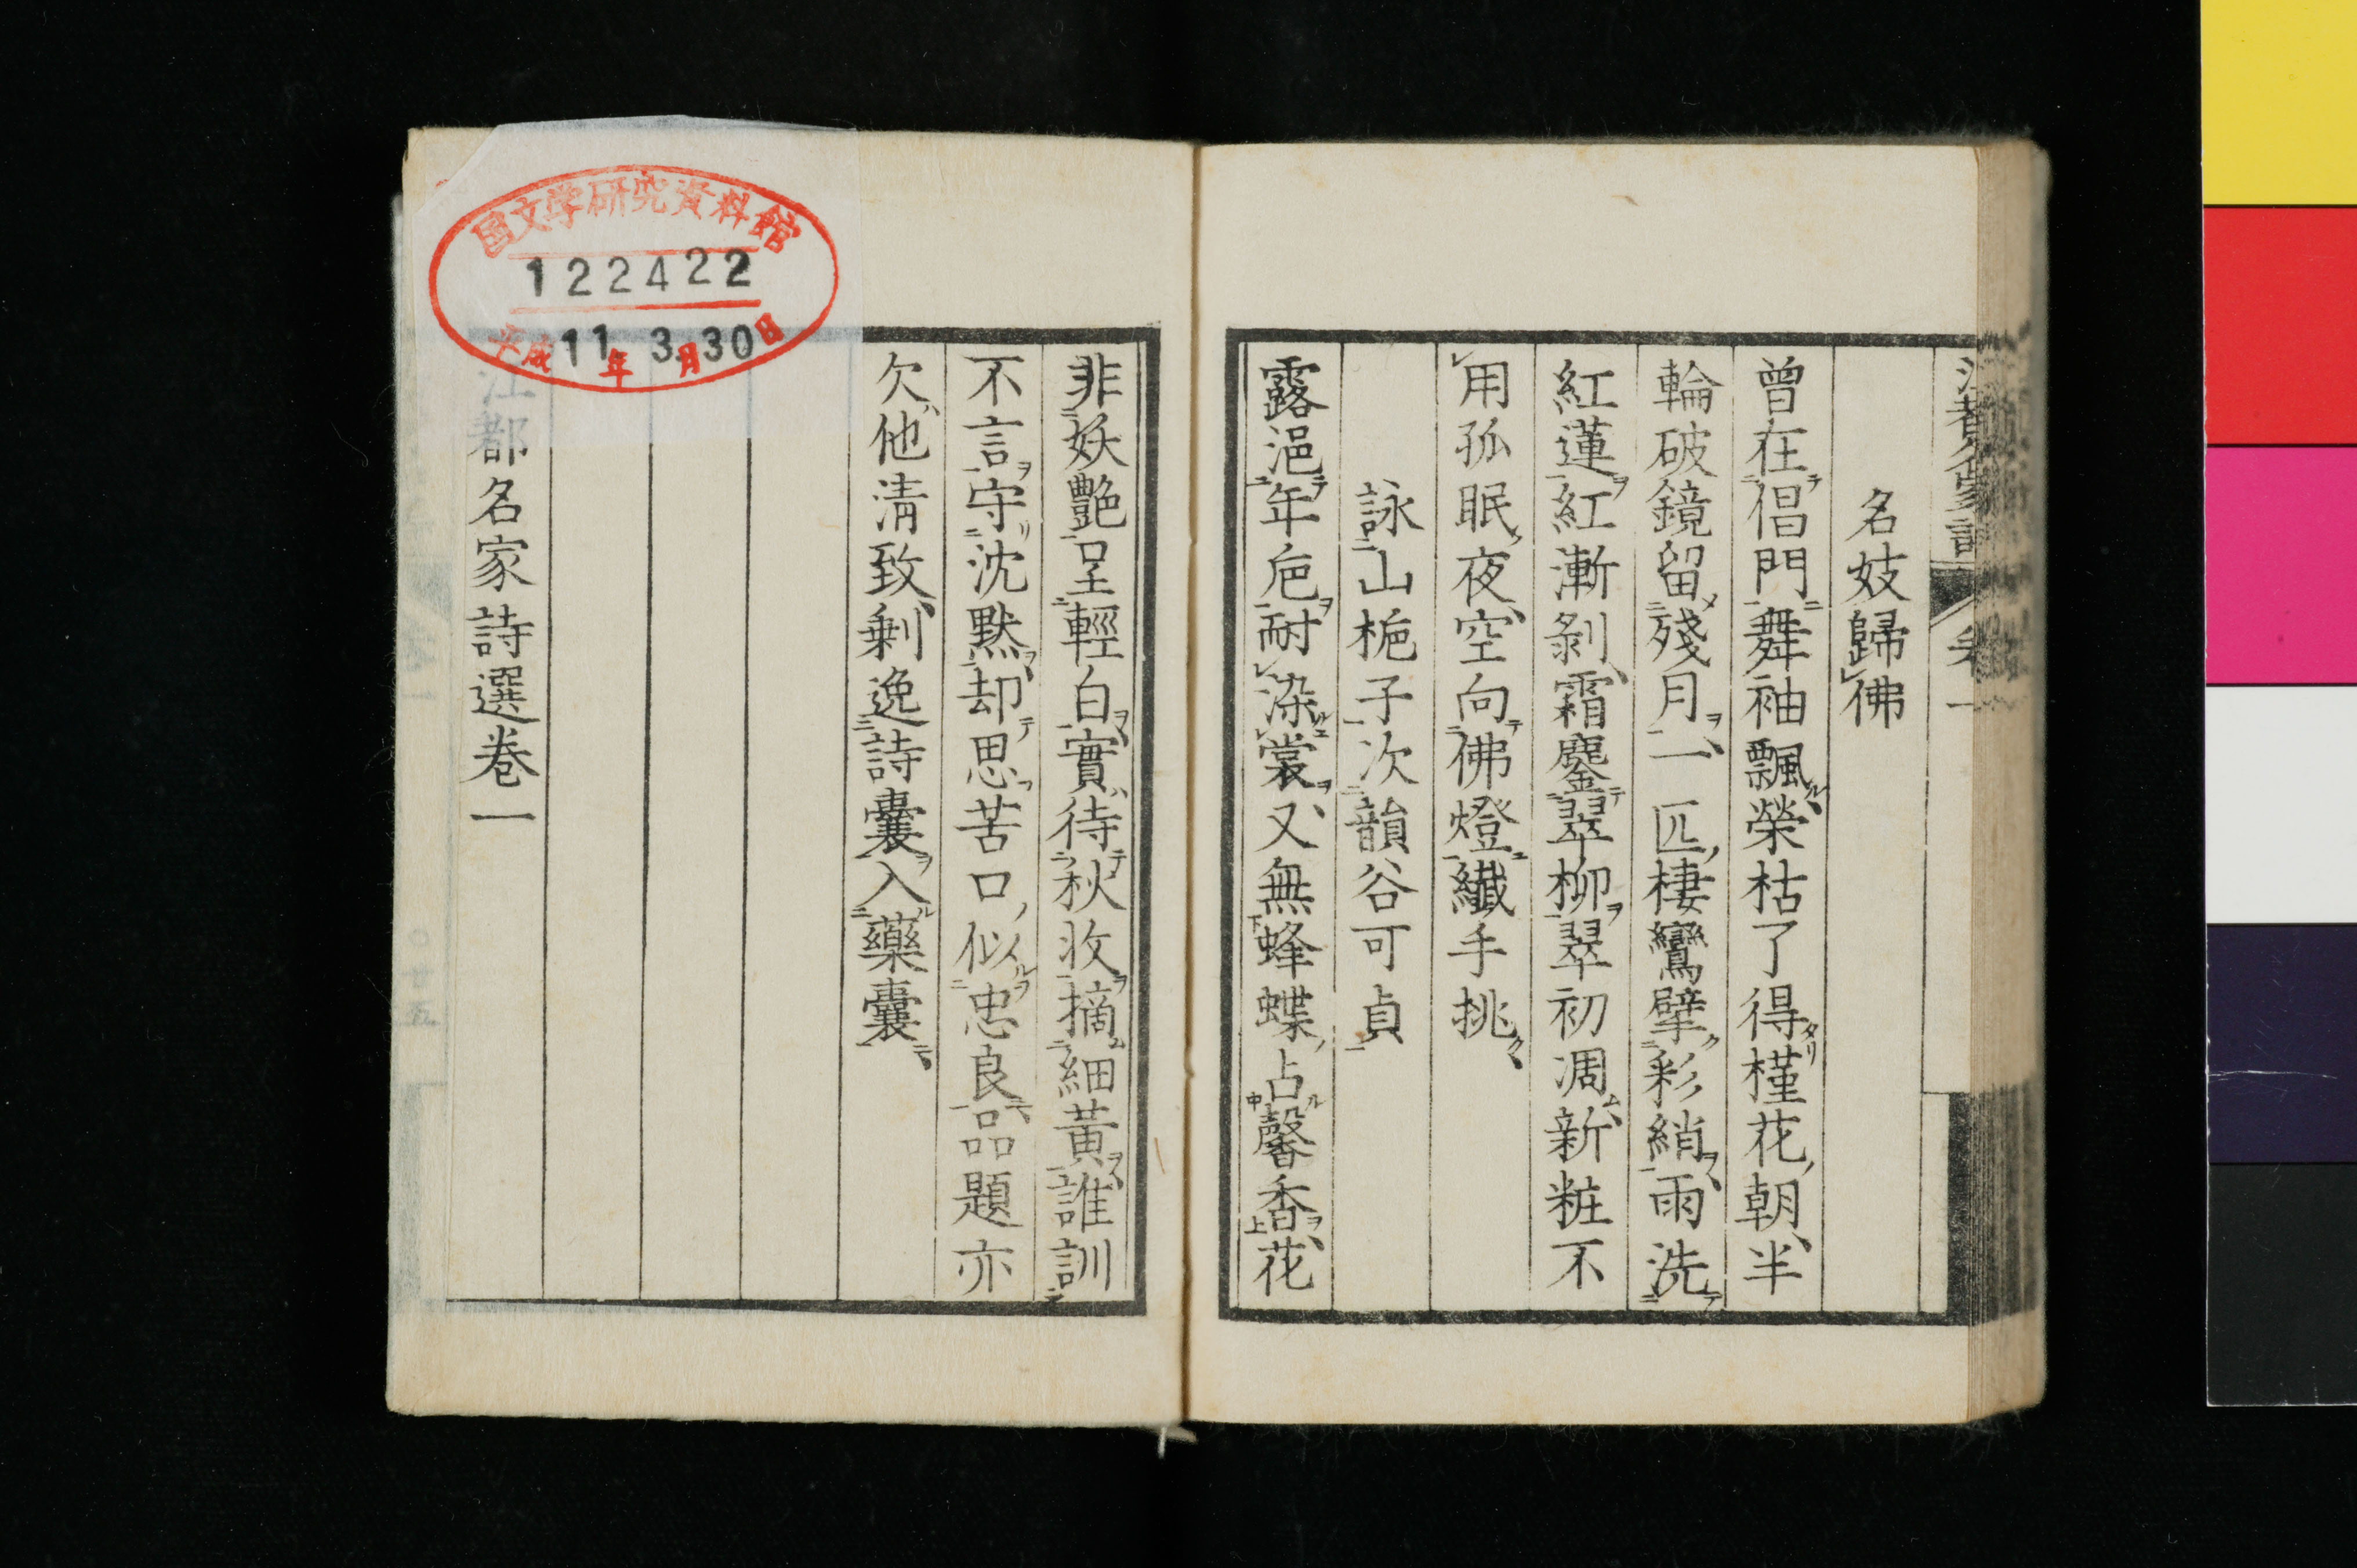 名妓歸佛
曾在倡門舞袖飄榮枯了得槿花朝半
輪破鏡留殘月一匹棲鸞擘彩綃雨洗
紅蓮紅漸剝霜鏖翠柳翠初凋新粧不
用孤眠夜空向佛燈纎手挑
詠山梔子次韻谷可貞
露浥年巵耐染裳又無蜂蝶占馨香花
非妖艷呈輕白實待秋收摘細黃誰訓
不言守沈默却思苦口似忠良品題亦
欠他淸致剩逸詩囊入藥囊
江都名家詩選卷一
国文学研究資料館
122422
平成11年3月30日